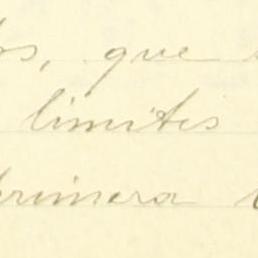 que
limites
primera